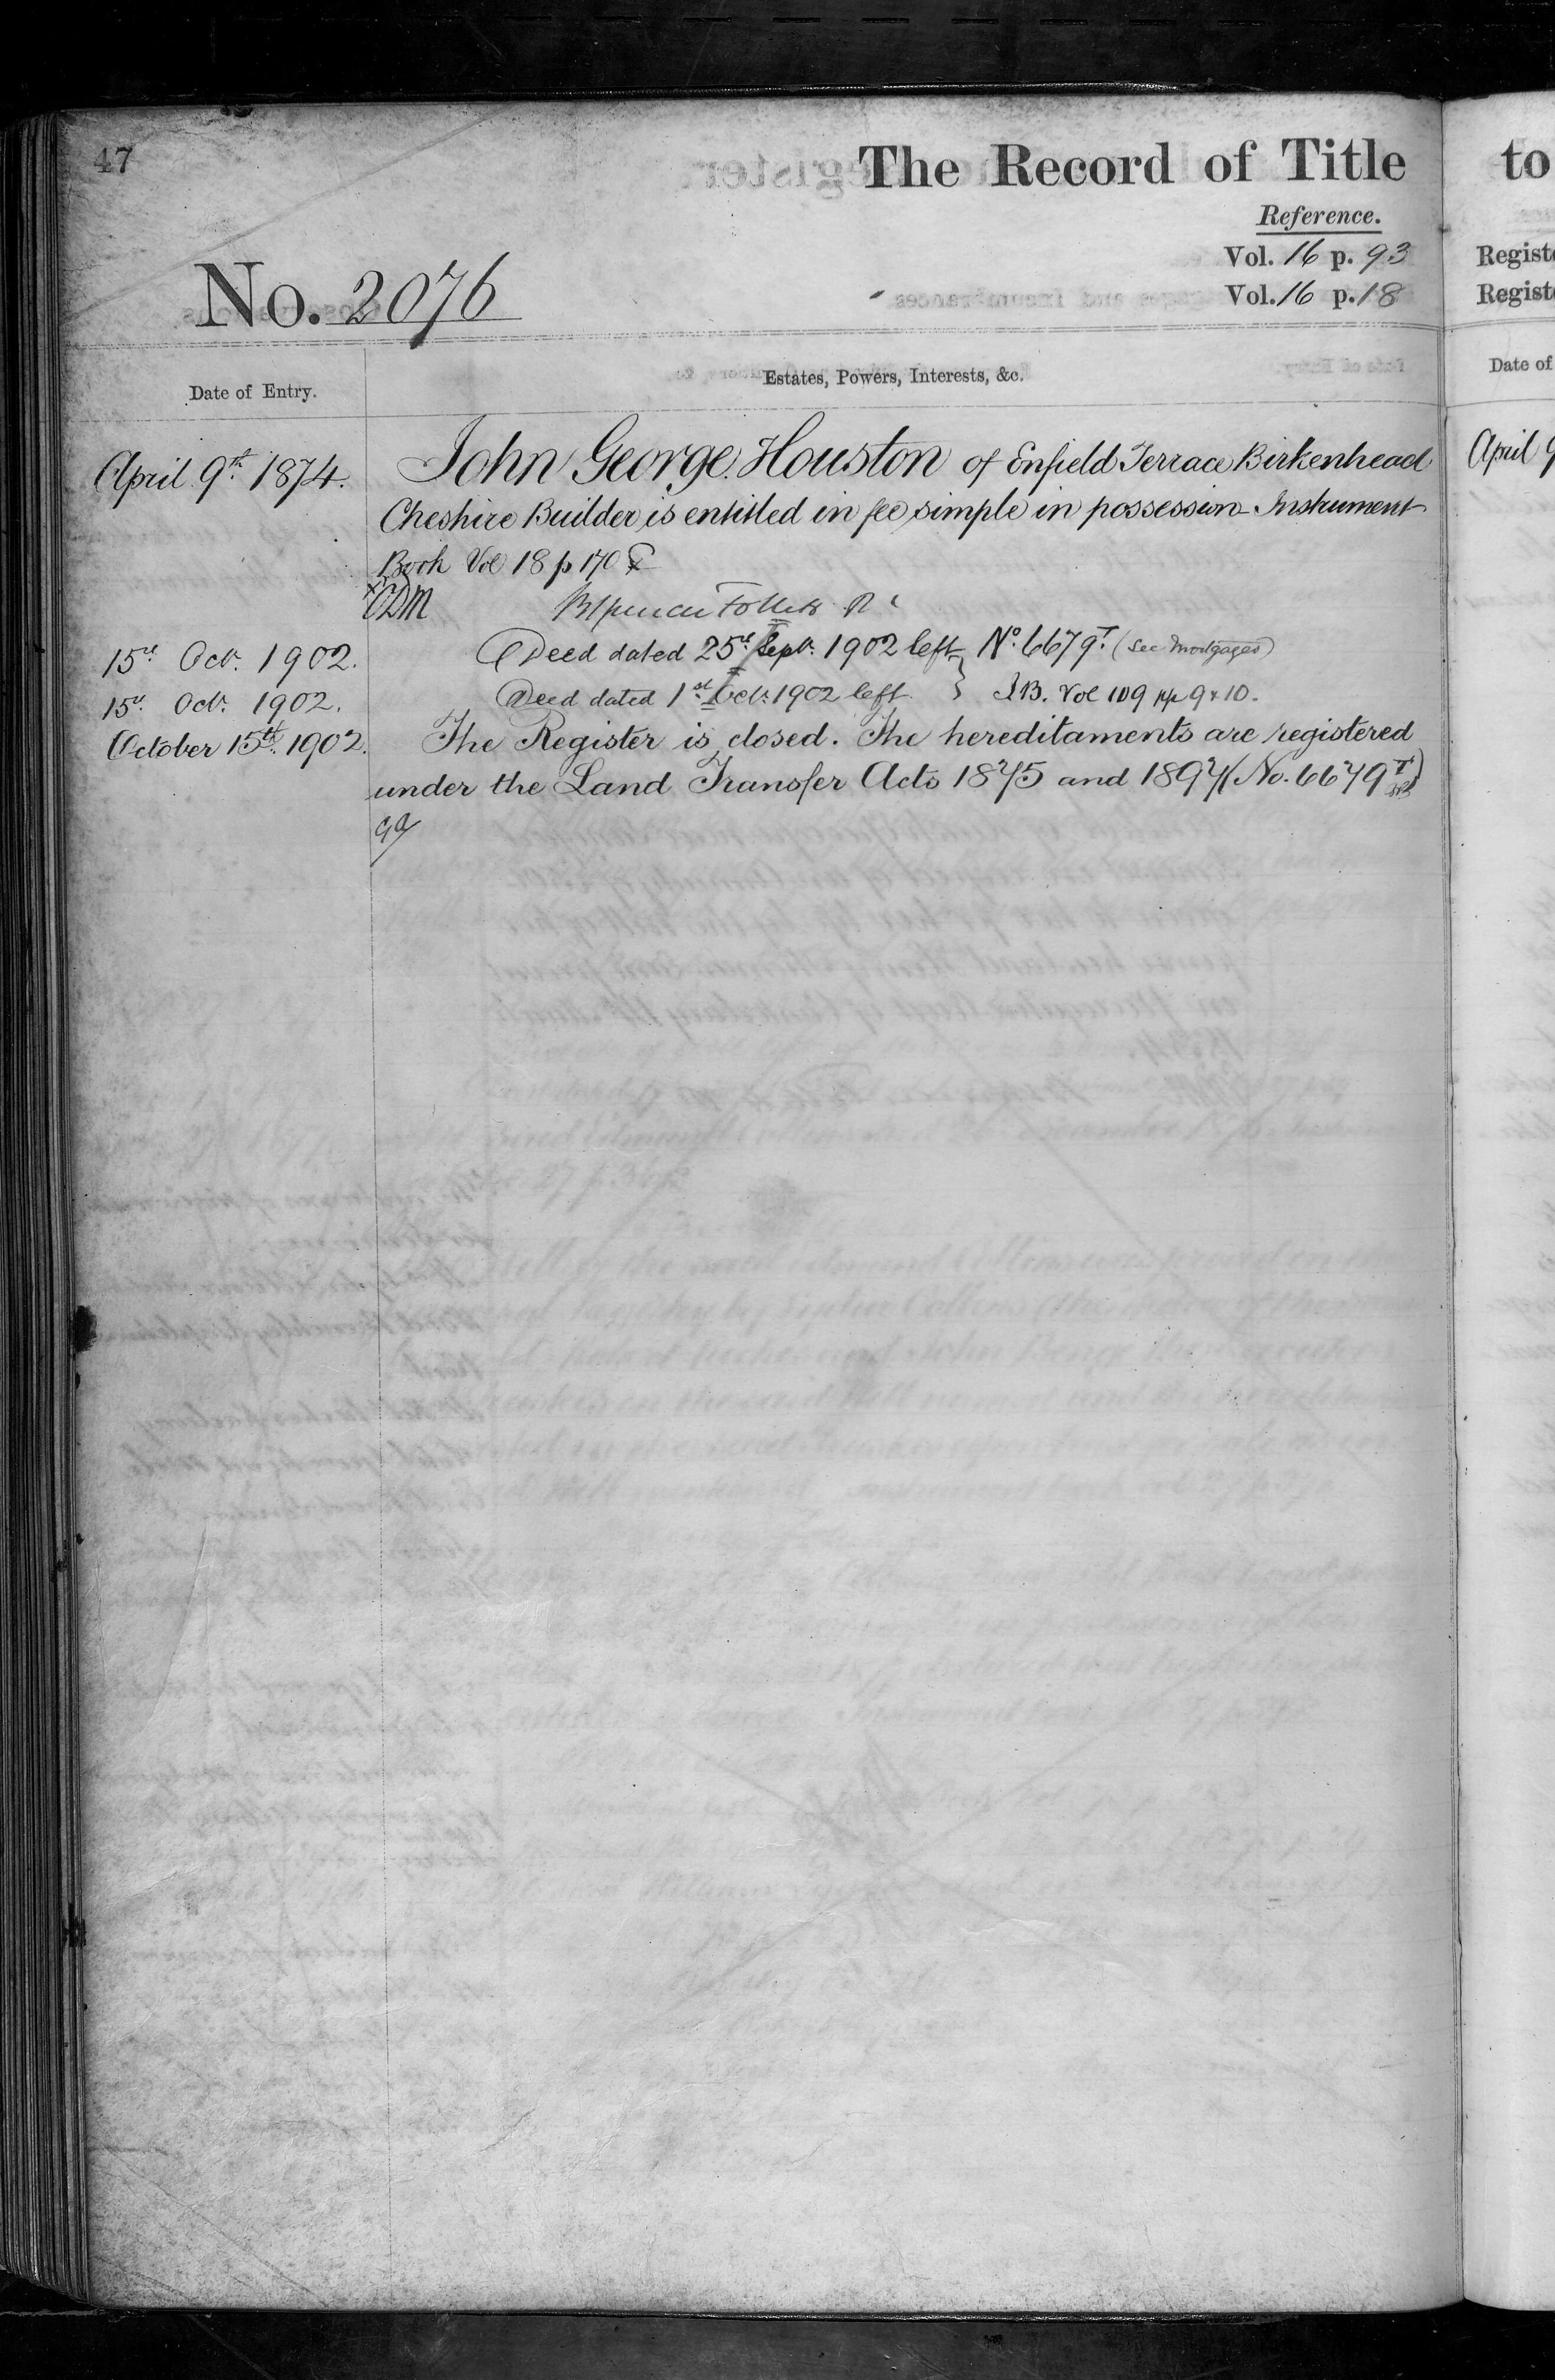 47
The Record of Title
to
Reference.
Vol. 16 p. 93
Regist
Vol. 16 p. 18
Regist
No. 2076
Date of Entry.
Estates, Powers, Interests, &c.
Date of
April 9th 1874.
John George Houston of Enfield Terrace Birkenhead
April 9
Cheshire Builder is entitled in fee simple in possession Instrument
Book Vol 18 p 170
ODM
15th Octr. 1902.
Deed dated 25th Septr. 1902 left No. 6679T. (See Mortgages)
15th Octr. 1902.
Deed dated 1st Octr. 1902 left } I B. Vol 109 pp 9 & 10.
October 15th. 1902.
The Register is closed. The hereditaments are registered
under the Land Transfer Acts 1875 and 1897 (No. 6679T)